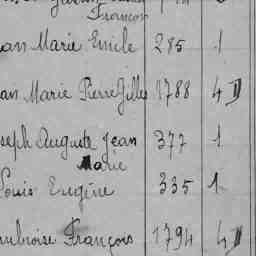 François
an Marie Emile 285 1
an Marie Pierre Gilles 1788 4 D
seph Auguste Jean 377 1
Marie
Louis Eugène 335 1
mbroise François 1794 4 D